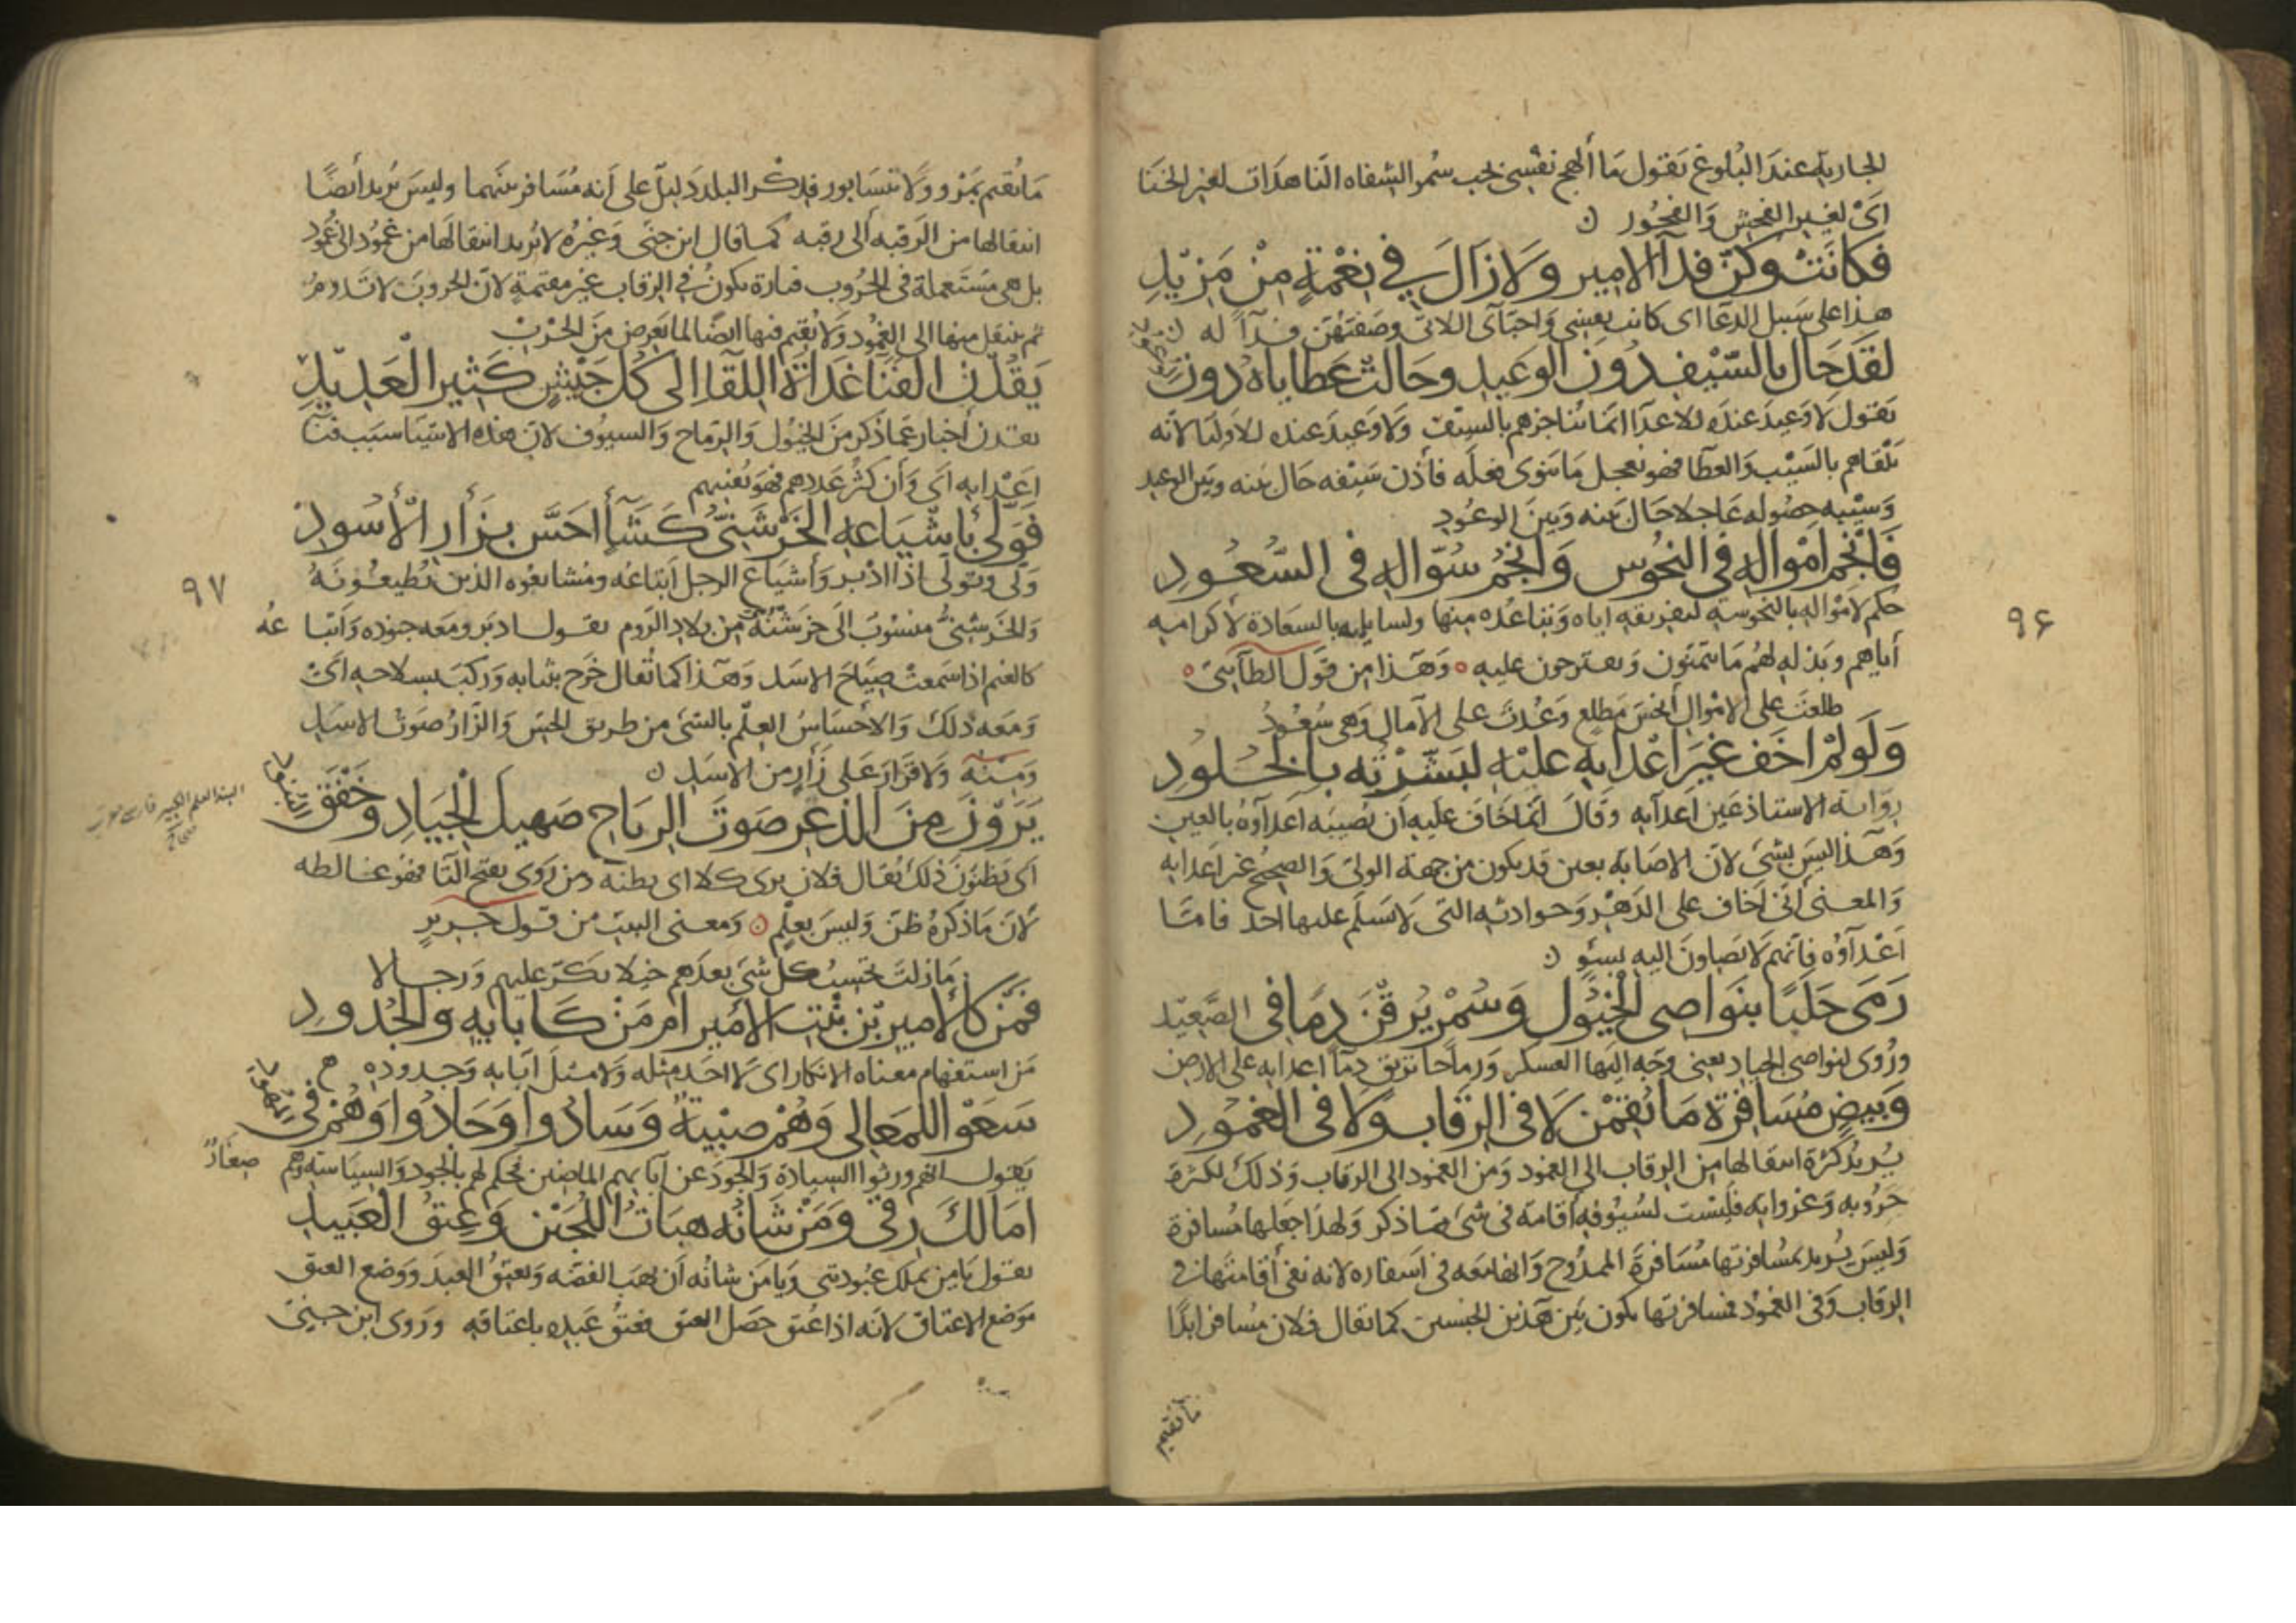 الجارية عند البلوغ يقول ما ألهج نفسي بحب سمر الشفاه الناهدات لغير الخنا
اى لغير الفحش والفجور ن
فَكَانَتْ وكُنّ فدآ الامير وَلَا زَالَ في نِعْمَةٍ مِنْ مَزيْدِ
هذا على سبيل الدعا اى كانت نفسي واحباى اللاتى وصفتهن فدآ له ن
لَقَد حَال بالسّيْف دُونَ الوعيد وحَالت عَطاياه دُونَ
الوعود
يقول لا وعيد عنده للاعدا انما يناجزهم بالسيف ولا وعيد عنده للاوليا لانه
يلقاهم بالسيب والعطا فهو يعجل ما ينوى فعله فاذن سيفه حال بينه وبين الوعيد
وسيبه حصوله عاجلا حال بينه وبين الوعود
فَانْجُم امْوالِهِ فى النحُوس وَانجُمُ سُوّالِهِ فى السُّعُودِ
حكم لامواله بالنحوسة لتفريقه اياه وتباعده منها ولسايليه بالسعادة لاكرامه
أياهم وبذله لهم ما يتمنون ويقترحون عليه ٥ وهذا من قول الطآيى ٥
طلعت على الاموال انحس مطلع وغدت على الآمال وهى سعود
وَلَو لمْ اخَف غيَر اعْدَايِهِ عليْهِ لبَشّرْتُه بالخُلودِ
رواية الاستاذ عين اعدآيه وقال انما خاف عليه ان تصيبه اعدآوه بالعين
وهذا ليس بشى لان الاصابة بعين قد يكون من جهة الولى والصحيح غير اعدايه
والمعنى انى اخاف على الدهر وحوادثه التى لا يسلم عليها احد فامّا
اعدآوه فانهم لا يصلون اليه بسوٍ ن
رَمَى حَلَبًا بنَواصِى الْخيُول وَسُمْر يُرِقْنَ دمًا فى الصَّعِيْد
وروى لنواصى الجياد يعنى وجه اليها العسكر ورماحا تريق دماً اعدايه على الارض
وَبيضٍ مُسَافِرَة مَا يُقِمْن لَا فى الرقَاب وَلا فى الغمُودِ
يريد كثرة انتقالها من الرقاب الى الغمود ومن الغمود الى الرقاب وذلك لكثرة
حروبه وغزواته فليست لسيوفه اقامة فى شى مما ذكر ولهذا جعلها مسافرة
وليس يريد بمسافرتها مسافرة الممدوح وانها معه فى اسفاره لانه نفى أقامتها فى
الرقاب وفى الغمود فمسافرتها يكون بين هذين الجنسين كما تقال فلان مسافر ابدًا
ما يقيم
٩۶
ما يقيم بمرو ولا نيسابور فذكر البلد دليل على انه مسافر بينهما وليس يريد أيضًا
انتقالها من الرقبه ألى رقبه كما قال ابن جنى وغيره لا يريد انتقالها من غمود الى غمود
بل هى مستعملة فى الحروب فتارة يكون فى الرقاب غير مقيمة لان الحروب لا تدوم
ثم ينتقل منها الى الغمود ولا يقيم فيها ايضًا لما يعرض من الحرب
يَقُدْنَ الفَنَا غَدَاةَ اللقَا الى كُل جَيْشٍ كَثِيرِ الْعَدِيْدِ
يقدن أخبار عما ذكر من الخيول والرماح والسيوف لان هذه الاشيا سبب فنآ
اعدايه اى وان كثر عددهم فهو يفنيهم
فَوَلّى بأشْيَاعِهِ الخَرْشَنيّ كَشَآٍ احَسّ بزَأرِ الأسُودِ
ولى وتولى اذا ادبر وأشياع الرجل اتباعه ومشايعوه الذين يطيعونه
والخرشنى منسوب الى خرشنة من بلاد الروم يقول ادبر ومعه جنوده واتبا عه
كالغنم اذا سمعت صياح الاسد وهذا كما تقال خرج بثيابه وركب بسلاحه اى
ومعه ذلك والاحساس العلم بالشى من طريق الحس والزأر صوت الاسد
ومنه ولا قرار على زأر من الاسد ن
يَرَوْنَ مِنَ الذعر صَوتَ الريَاحِ صَهيل الْجيَادِ وخَفْقَ
البنود
البنود العلم الكبير فارسى معرب
اى يظنون ذلك يقال فلان يرى كذا اى يظنه ومن روى بفتح التا فهو غالطه
لان ما ذكره ظن وليس بعلم ن ومعنى البيت من قول جرير
ما زلت تحسب كل شى بعدهم خيلا تكر عليهم ورجالا
فَمَن كالأمير بْن بنْتِ الأمير ام مَنْ كَآبَايِهِ والجُدودِ
من استفهام معناه الانكار اى لا احد مثله ولا مثل آبايه وجدوده
سَعَوْا للمَعالى وَهُمْ صبْيَةٌ وَسَادُوا وَجَادُوا وَهُمْ فى
المهود
يقول انهم ورثوا السيادة والجود عن آبايهم الماضين فحكم لهم بالجود والسياسة وهم صغارٌ
امَالكَ رِقّى وَمَن شَانُه هِبَاتُ اللُجَيْن وَعِتقُ الْعَبيدِ
يقول يا من يملك عبوديتى ويا من شانه أن يهب الفضه ويعتق العبيد ووضع العتق
موضع الاعتاق لانه اذا اعتق حصل العتق فعتق عبده باعتاقه وروى ابن جنى
٩٧